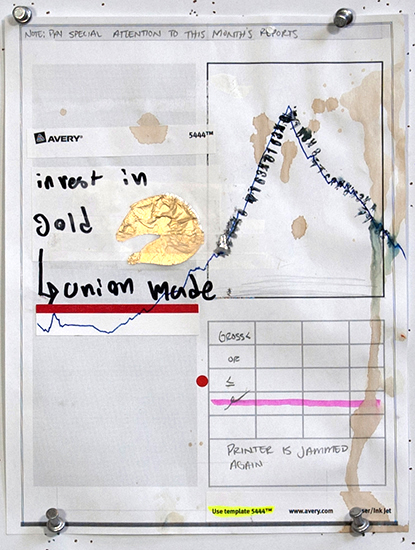 NOTE: PAY SPECIAL ATTENTION TO THIS MONTH'S REPORTS
AVERY® 5444™
invest in
gold
union made
GROSS
OR
≤
PRINTER IS JAMMED
AGAIN
Use template 5444™ www.avery.com ser/Ink Jet